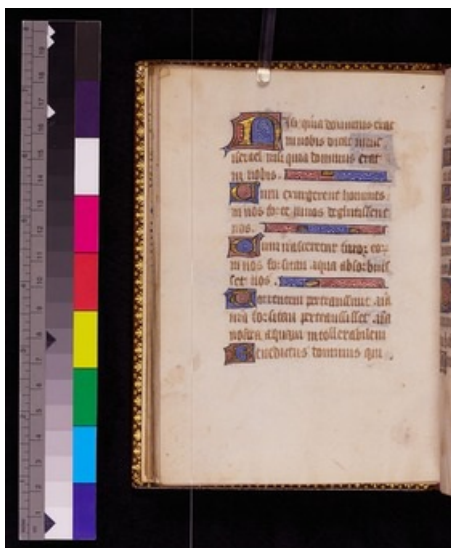 Nisi quia dominus erat
in nobis dicat nunc
israel nisi quia dominus erat
in nobis.
Cum exurgerent homines
in nos forte vivos deglutissent
nos.
Cum irasceretur furor eor
in nos forsitan aqua absorbuis
set nos.
Torrentem pertransivit aia
nra forsitan pertransisset aia
nostra aquam intollerabilem
Benedictus dominus qui